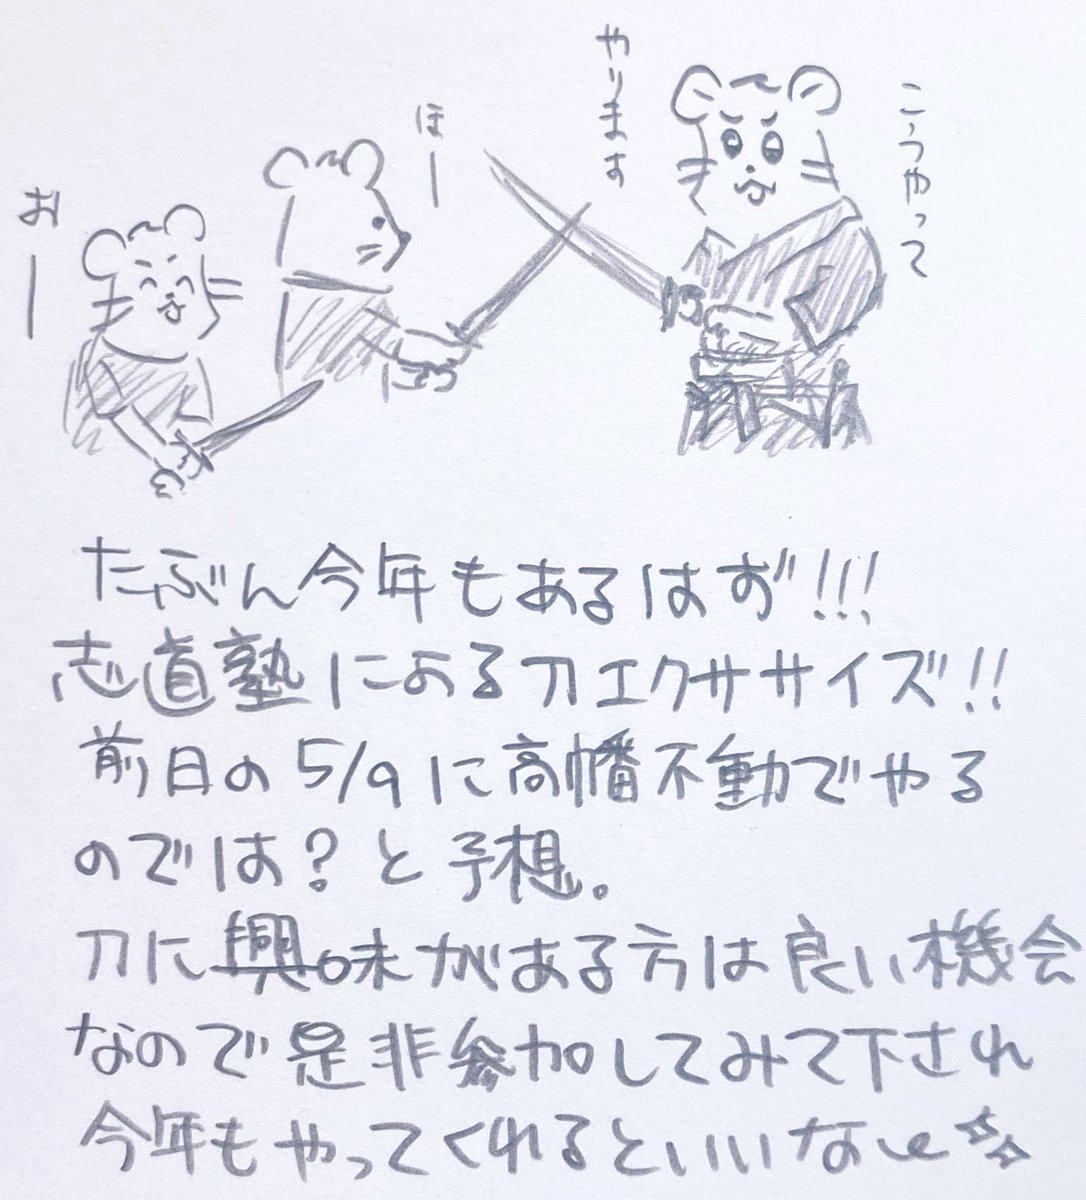 こうやって
やります
ほー
おー
たぶん今年もあるはず!!!
志道塾による刀エクササイズ!!
前日の5/9に高幡不動でやる
のでは?と予想。
刀に興味がある方は良い機会
なので是非参加してみて下され
今年もやってくれるといいなぁ